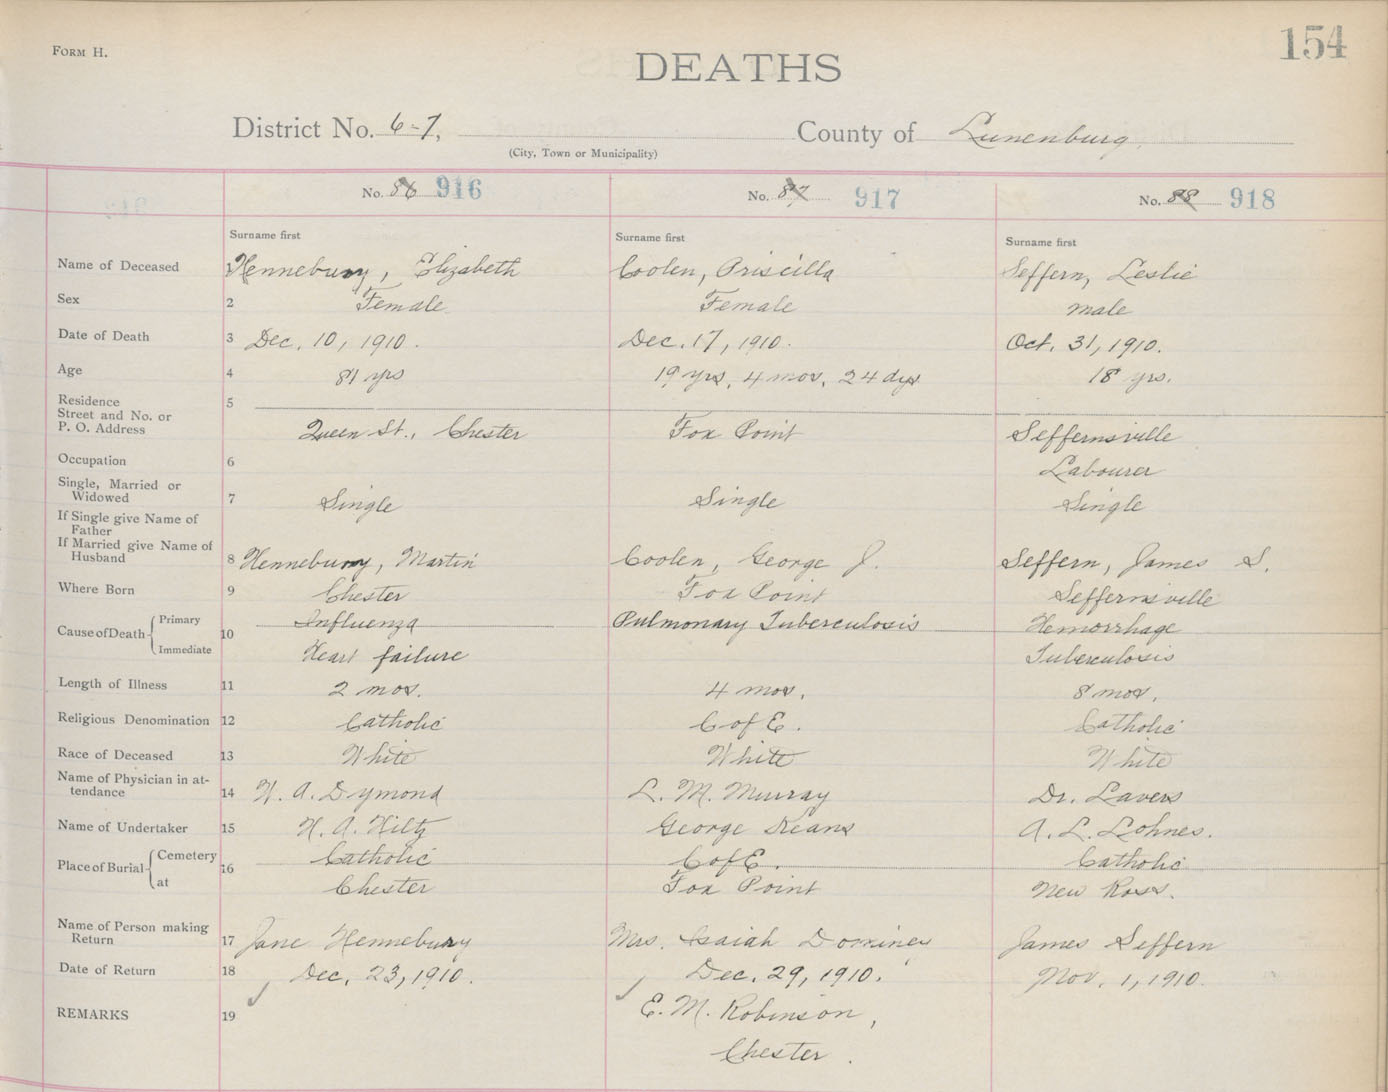 FORM H.
154
DEATHS
District No. 6-7, County of Lunenburg,
(City, Town or Municipality)
No. 86 916 No. 87 917 No. 88 918
Surname first Surname first Surname first
Name of Deceased 1 Hennebury, Elizabeth Coolen, Priscilla Seffern, Leslie
Sex 2 Female Female male
Date of Death 3 Dec. 10, 1910. Dec. 17, 1910. Oct. 31, 1910.
Age 4 81 yrs 19 yrs, 4 mos, 24 dys 18 yrs.
Residence 5
Street and No. or
P. O. Address Queen St., Chester Fox Point Seffernsville
Occupation 6 Labourer
Single, Married or
Widowed 7 Single Single Single
If Single give Name of
Father
If Married give Name of
Husband 8 Hennebury, Martin Coolen, George J. Seffern, James S.
Where Born 9 Chester Fox Point Seffernsville
Cause of Death 10 Primary Influenza Pulmonary Tuberculosis Hemorrhage
Immediate Heart failure Tuberculosis
Length of Illness 11 2 mos. 4 mos. 8 mos.
Religious Denomination 12 Catholic C of E. Catholic
Race of Deceased 13 White White White
Name of Physician in at-
tendance 14 W. A. Dymond L. M. Murray Dr. Lavers
Name of Undertaker 15 H. A. Hiltz George Keans A. L. Lohnes.
Place of Burial 16 Cemetery Catholic C of E. Catholic
at Chester Fox Point New Ross.
Name of Person making
Return 17 Jane Hennebury Mrs. Isaiah Dominey James Seffern
Date of Return 18 Dec. 23, 1910. Dec. 29, 1910. Nov. 1, 1910.
REMARKS 19 E. M. Robinson,
Chester.